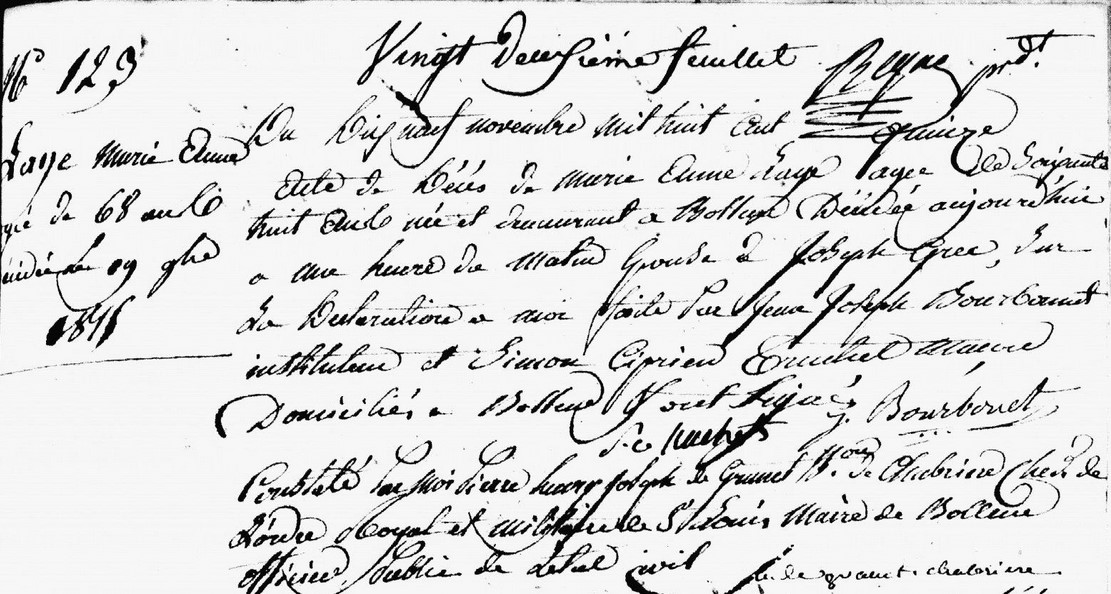 N° 123
Vingt Deusiéme feuillet
prdt
Laye Marie Anne
agé de 68 ans
décédée le 19 9bre
1811
Du Dix neuf novembre mil huit cent quinze
acte de Décés de Marie Anne Laye agee de Soixante
huit ans née et demeurant a Bollene Décédée aujourd'hui
a une heure du matin Epouse de Joseph Gree, Sur
La Déclaration a moi faite par Jean Joseph Bourbonnet
instituteur et Simon Ciprien
Domiciliés a Bollene Sont Signés
J. Bourbonet
Constaté Par Moi Pierre henry Joseph de Gramet de Chabriere Cher. de
L'ordre Royal et militaire de St Louis Maire de Bollene
officier Public de L'état civil
chabriere